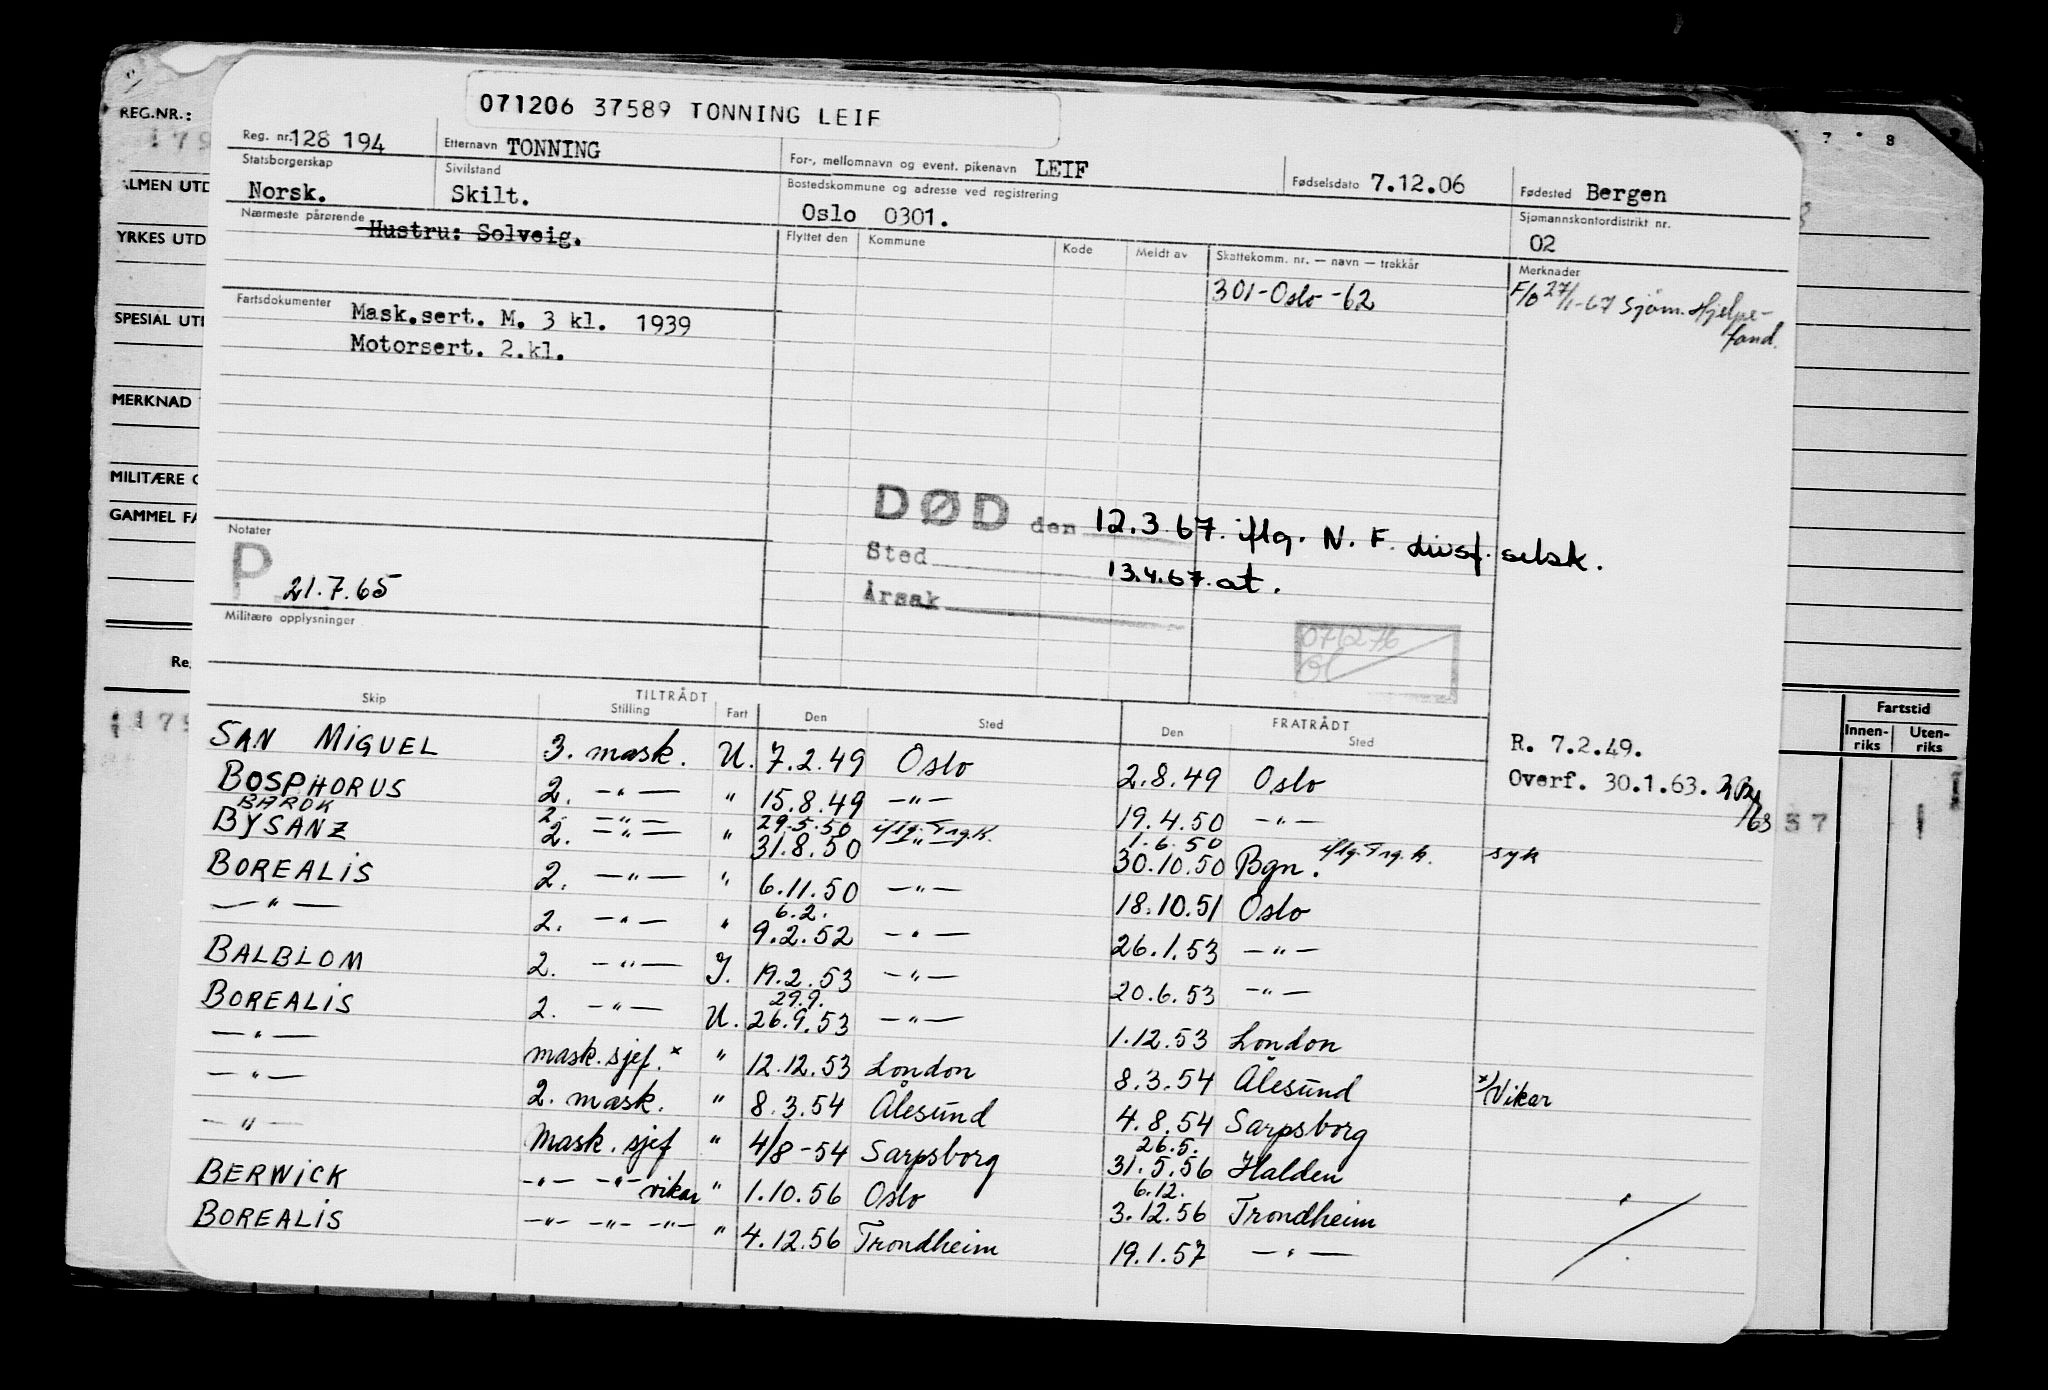 071206 37589 TONNING LEIF
REG.NR.:
Reg. nr. 128 194 Etternavn TONNING For-, mellomnavn og event. pikenavn LEIF Fødselsdato 7.12.06 Fødested Bergen
Statsborgerskap Norsk. Sivilstand Skilt. Bostedskommune og adresse ved registrering Oslo 0301. Sjømannskontordistrikt nr. 02
ALMEN UTD
YRKES UTD
SPESIAL UTD
MERKNAD
MILITÆRE O
GAMMEL FA
Nærmeste pårørende Hustru: Solveig.
Flyttet den Kommune Kode Meldt av Skattekomm. nr. — navn — trekkår Merknader
301-Oslo-62 F/O 27/1-67 Sjøm. Hjelpe-
fond.
Fartsdokumenter Mask.sert. M. 3 kl. 1939
Motorsert. 2.kl.
DØD den 12.3.67. iflg. N. F. livsf. selsk.
Sted 13.4.67. at.
Årsak
Notater
P 21.7.65
Militære opplysninger
071276
TILTRÅDT FRATRÅDT
Skip Stilling Fart Den Sted Den Sted
SAN MIGUEL 3. mask. U. 7.2.49 Oslo 2.8.49 Oslo R. 7.2.49.
BOSPHORUS 2. —"— " 15.8.49 —"— 19.4.50 —"— Overf. 30.1.63. /63
BARDK 2. —"— 29.5.50 iflg. Trg.k. 1.6.50 iflg. Trg.k. syk
BYSANZ 2. —"— " 31.8.50 —"— 30.10.50 Bgn.
BOREALIS 2. —"— " 6.11.50 —"— 18.10.51 Oslo
6.2.
—"— 2. —"— " 9.2.52 —"— 26.1.53 —"—
BALBLOM 2. —"— I. 19.2.53 —"— 20.6.53 —"—
29.9.
BOREALIS 2. —"— U. 26.9.53 —"— 1.12.53 London
—"— mask. sjef. x " 12.12.53 London 8.3.54 Ålesund x/Vikar
—"— 2. mask. " 8.3.54 Ålesund 4.8.54 Sarpsborg
26.5.
—"— Mask. sjef " 4/8-54 Sarpsborg 31.5.56 Halden
6.12.
BERWICK —"— —"— vikar " 1.10.56 Oslo 3.12.56 Trondheim
BOREALIS —"— —"— —"— " 4.12.56 Trondheim 19.1.57 —"—
Fartstid
Innen-
riks Uten-
riks